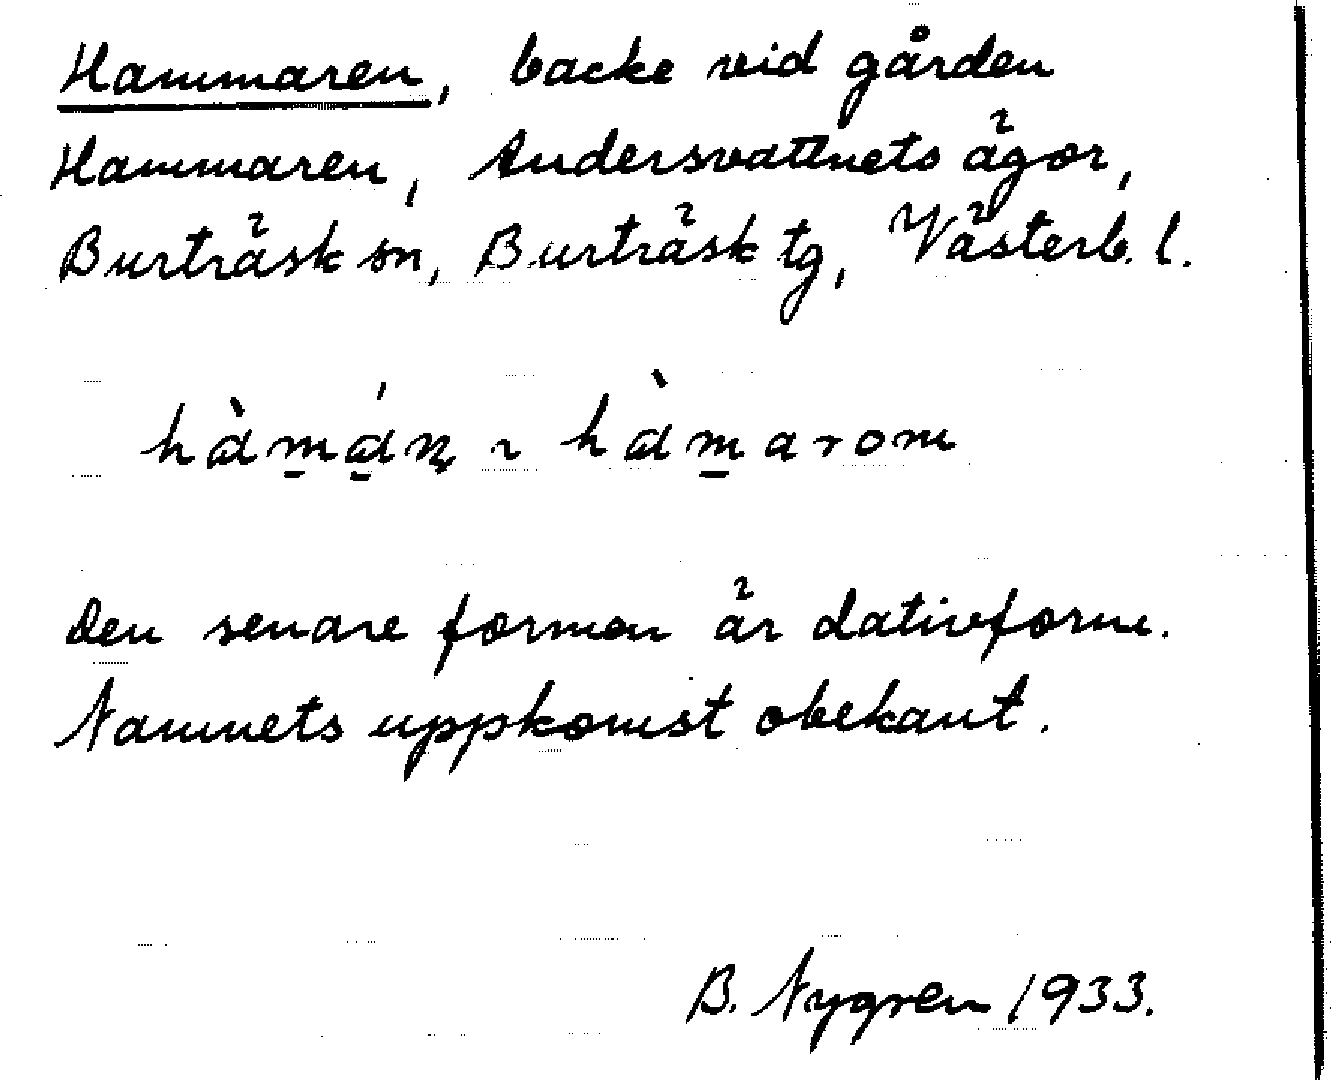 Hammaren, backe vid gården
Hammaren, Andersvattnets ägor,
Burträsk sn, Burträsk tg, Västerb. l.
hàm̲á̲ɳ ~ hàm̲arom
Den senare formen är dativform.
Namnets uppkomst obekant.
B. Nygren 1933.